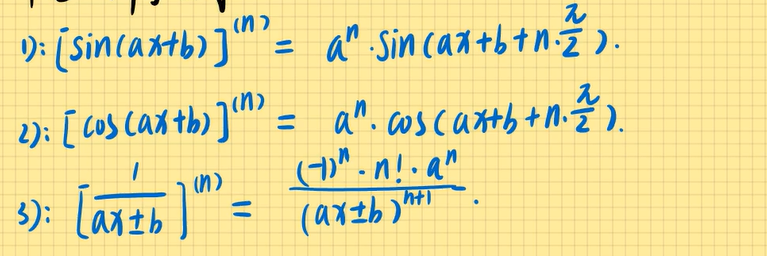 1): [sin(ax+b)]^(n) = a^n · sin(ax+b+n·π/2).
2): [cos(ax+b)]^(n) = a^n · cos(ax+b+n·π/2).
3): [1/(ax±b)]^(n) = (-1)^n · n! · a^n / (ax±b)^(n+1) .